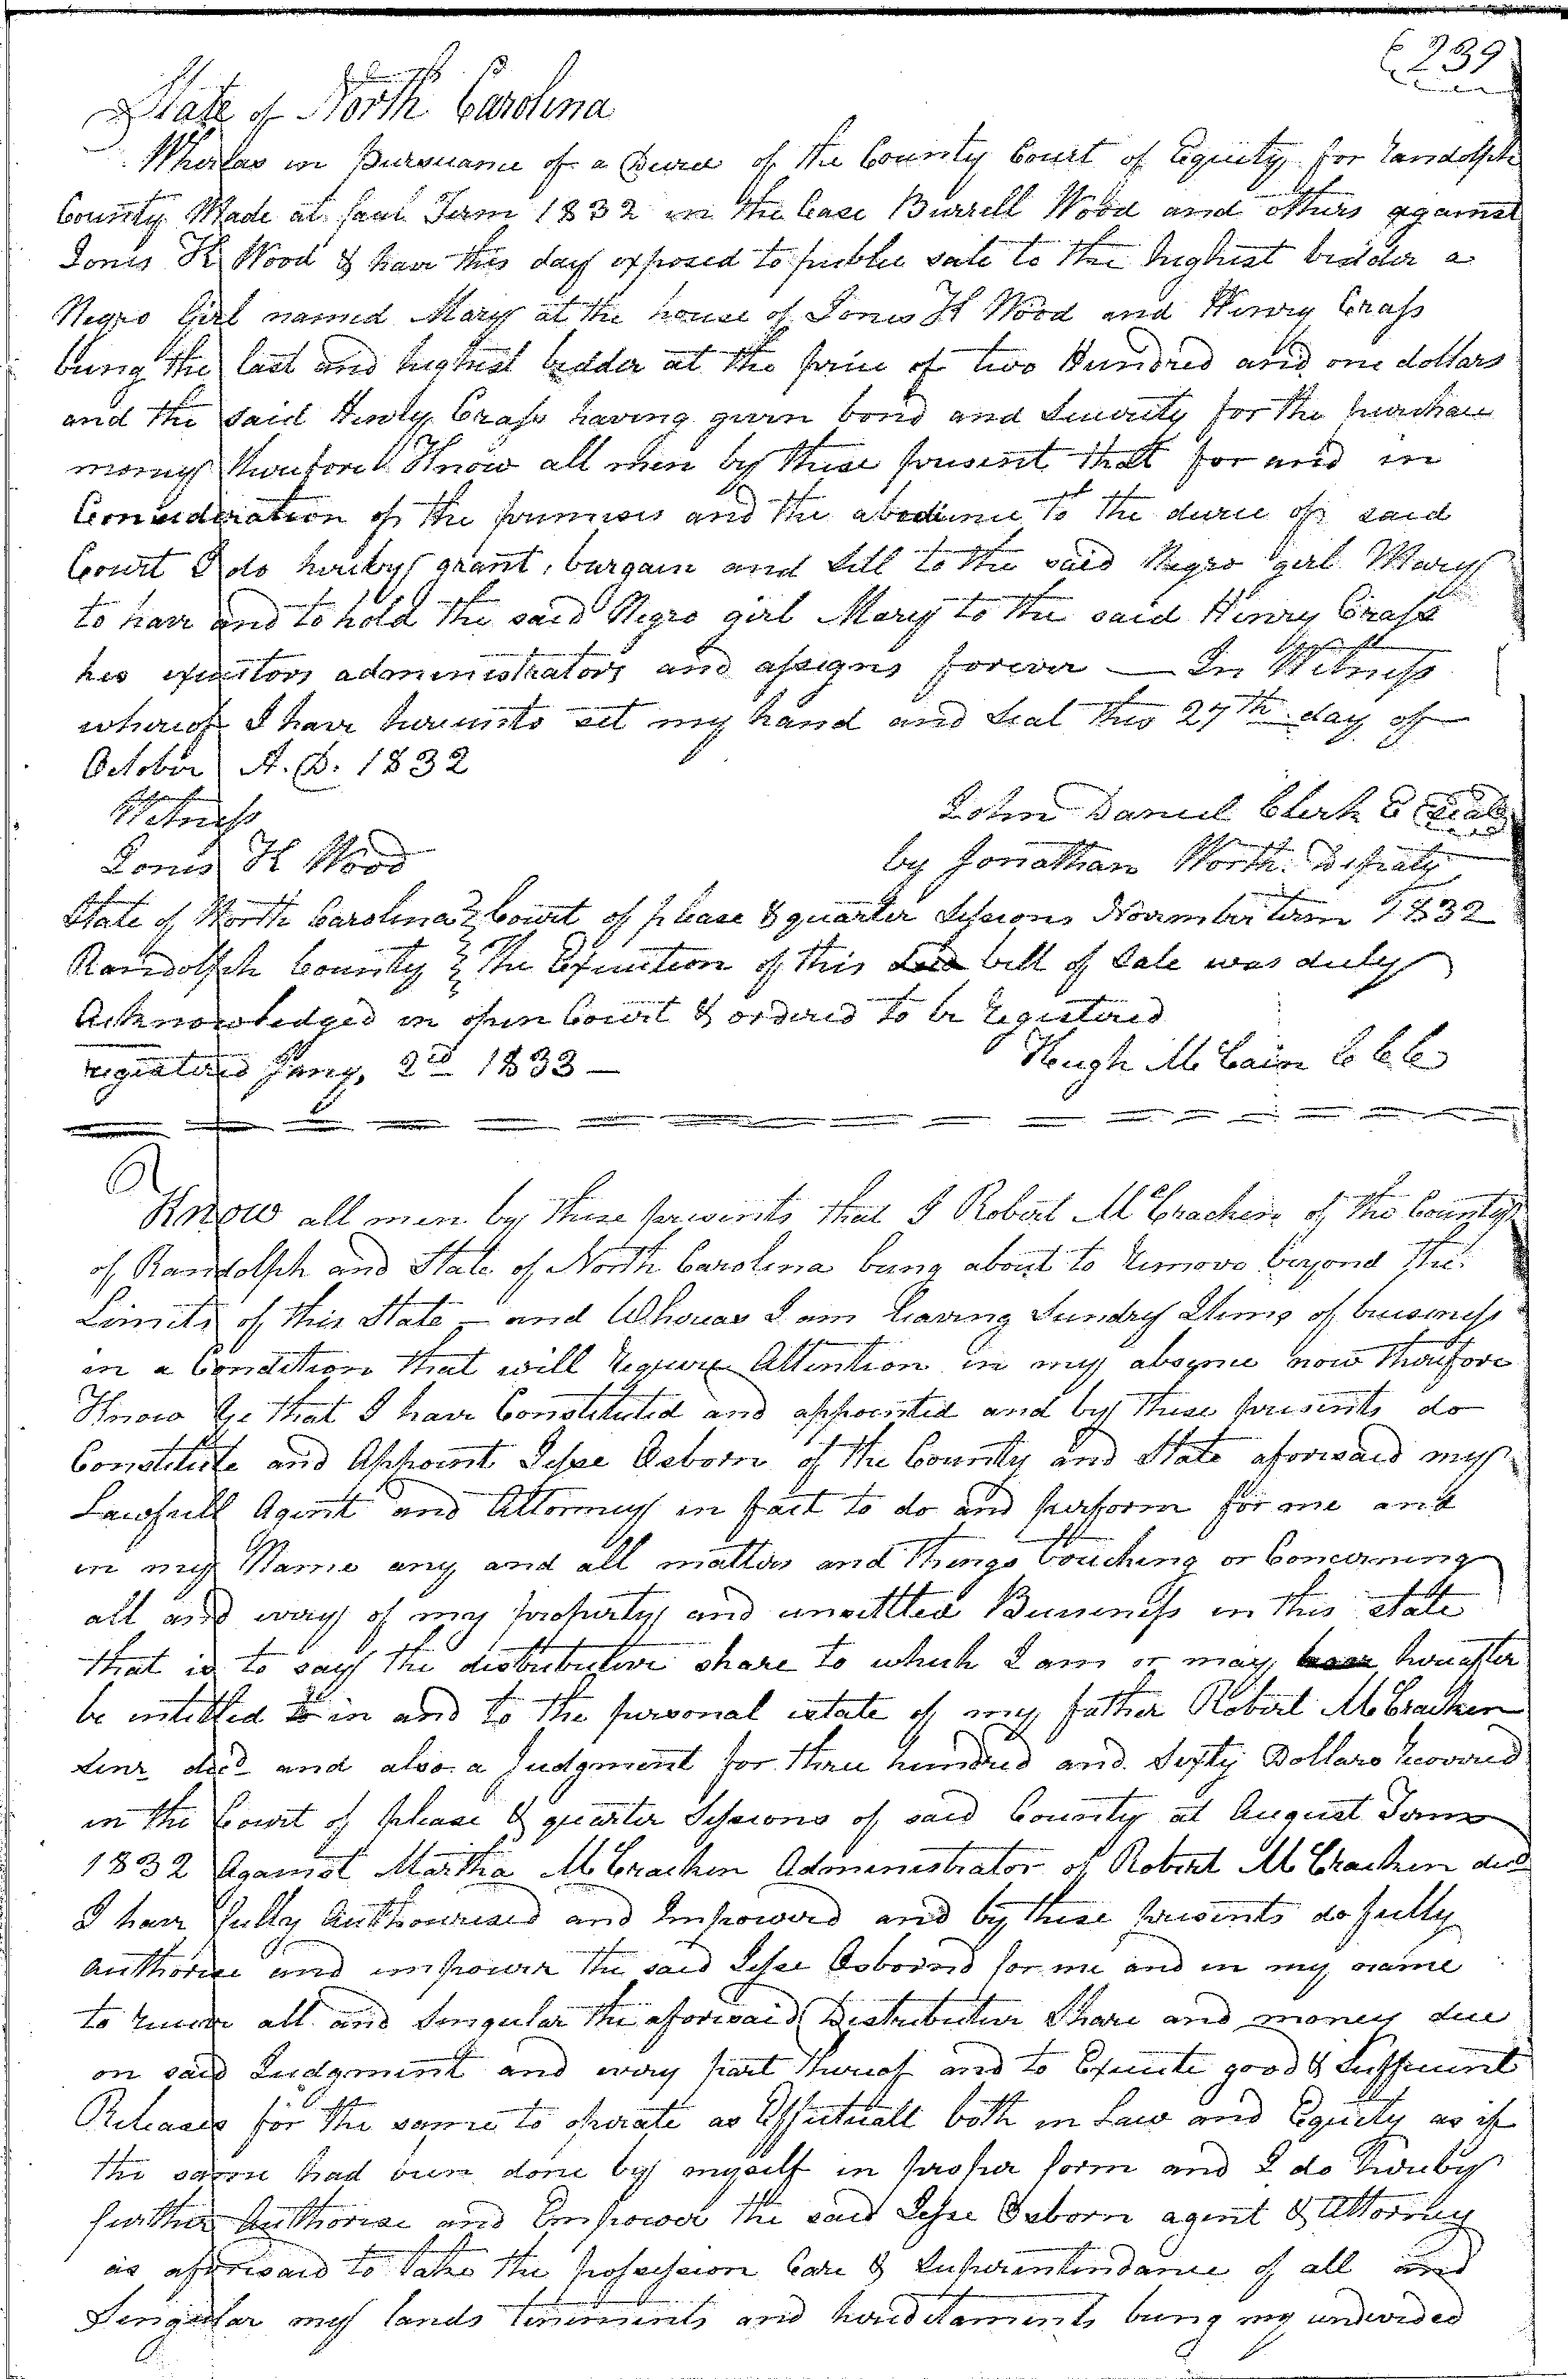 239
State of North Carolina
Whereas in Pursuance of a Decree of the County Court of Equity for Randolph
County Made at faul Term 1832 in the Case Burrell Wood and others against
Jones H Wood & have this day exposed to public sale to the highest bidder a
Negro Girl named Mary at the house of Jones H Wood and Henry Crass
being the last and highest bidder at the price of two Hundred and one dollars
and the said Henry Crass having given bond and Security for the purchase
money therefore Know all men by these present that for and in
Consideration of the premises and the abedience to the decree of said
Court I do hereby grant, bargain and sell to the said Negro girl Mary
to have and to hold the said Negro girl Mary to the said Henry Crass
his executors administrators and assigns forever — In Witness
whereof I have hereunto set my hand and Seal this 27th day of
October A. D. 1832
Witness
John Daniel Clerk E Seal
Jones H Wood
by Jonathan Worth. Deputy
State of North Carolina } Court of please & quarter Sessions November term 1832
Randolph County } The Execution of this bill of Sale was duly
Acknowledged in open Court & ordered to be Registered
registered Jany, 2nd 1833 —
Hugh McCain C C C
Know all men by these presents that I Robert McCracken of the County
of Randolph and State of North Carolina being about to Remove beyond the
Limits of this State – and Whereas I am leaving Sundry Items of business
in a Condition that will Require Attention in my absence now therefore
Know Ye that I have Constituted and appointed and by these presents do
Constitute and Appoint Jesse Osborn of the County and State aforesaid my
Lawfull Agent and Attorney in fact to do and perform for me and
in my Name any and all matters and things touching or Concerning
all and every of my property and unsettled Business in this State
that is to say the distributive share to which I am or may hereafter
be intitled to in and to the personal estate of my father Robert McCracken
Senr decd and also a Judgment for three hundred and Sixty Dollars recovered
in the Court of please & quarter Sessions of said County at August Term
1832 Against Martha McCracken Administrator of Robert McCracken decd
I have fully Authourised and Impowered and by these presents do fully
Authorise and impower the said Jesse Osborn for me and in my name
to receive all and Singular the aforesaid Distributive Share and money due
on said Judgment and every part thereof and to Execute good & Sufficient
Releases for the same to operate as Effectuall both in Law and Equity as if
the same had been done by myself in proper form and I do hereby
further Authorise and Empower the said Jesse Osborn agent & Attorney
as aforesaid to take the possession Care & Superintendance of all and
Singular my lands tenements and hereditaments being my undivided